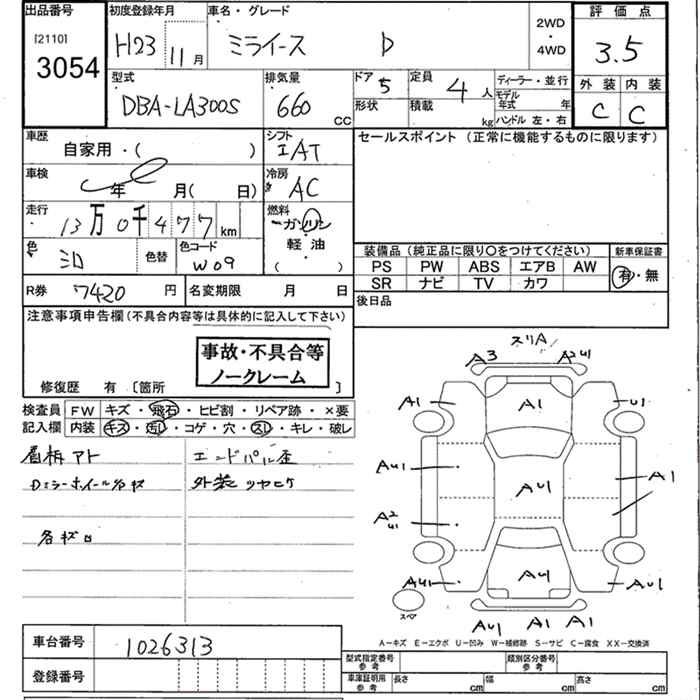 出品番号
[2110]
3054
初度登録年月
H23 11月
車名・グレード
ミライース D
2WD
・
4WD
評価点
3.5
外装 内装
C C
型式
DBA-LA300S
排気量
660 CC
ドア 5
形状
定員 4 人
積載 kg
ディーラー・並行
モデル
年式 年
ハンドル 左・右
車歴
自家用・( )
シフト
IAT
セールスポイント(正常に機能するものに限ります)
車検
年 月( 日)
冷房
AC
走行
13万0千477km
燃料
ガソリン
軽油
( )
色
シロ
色替
色コード
W09
装備品(純正品に限り○をつけてください)
新車保証書
PS PW ABS エアB AW
SR ナビ TV カワ
有・無
R券 7420 円
名変期限 月 日
後日品
注意事項申告欄(不具合内容等は具体的に記入して下さい)
事故・不具合等
ノークレーム
修復歴 有〔箇所 〕
検査員
記入欄
FW キズ・飛石・ヒビ割・リペア跡・×要
内装 キズ・汚レ・コゲ・穴・スレ・キレ・破レ
アト
エンドパネル歪
外装ツヤヒケ
スリA
A3 A2 U1
A1 A1 U1
AU1 AU1 A1
A2 U1
AU1 AU1 AU1
スペア
AU1 A1 A1
A－キズ E－エクボ U－凹み W－補修跡 S－サビ C－腐食 XX－交換済
車台番号 1026313
登録番号
型式指定番号
参考
類別区分番号
参考
車庫証明用
参考
長さ cm 幅 cm 高さ cm